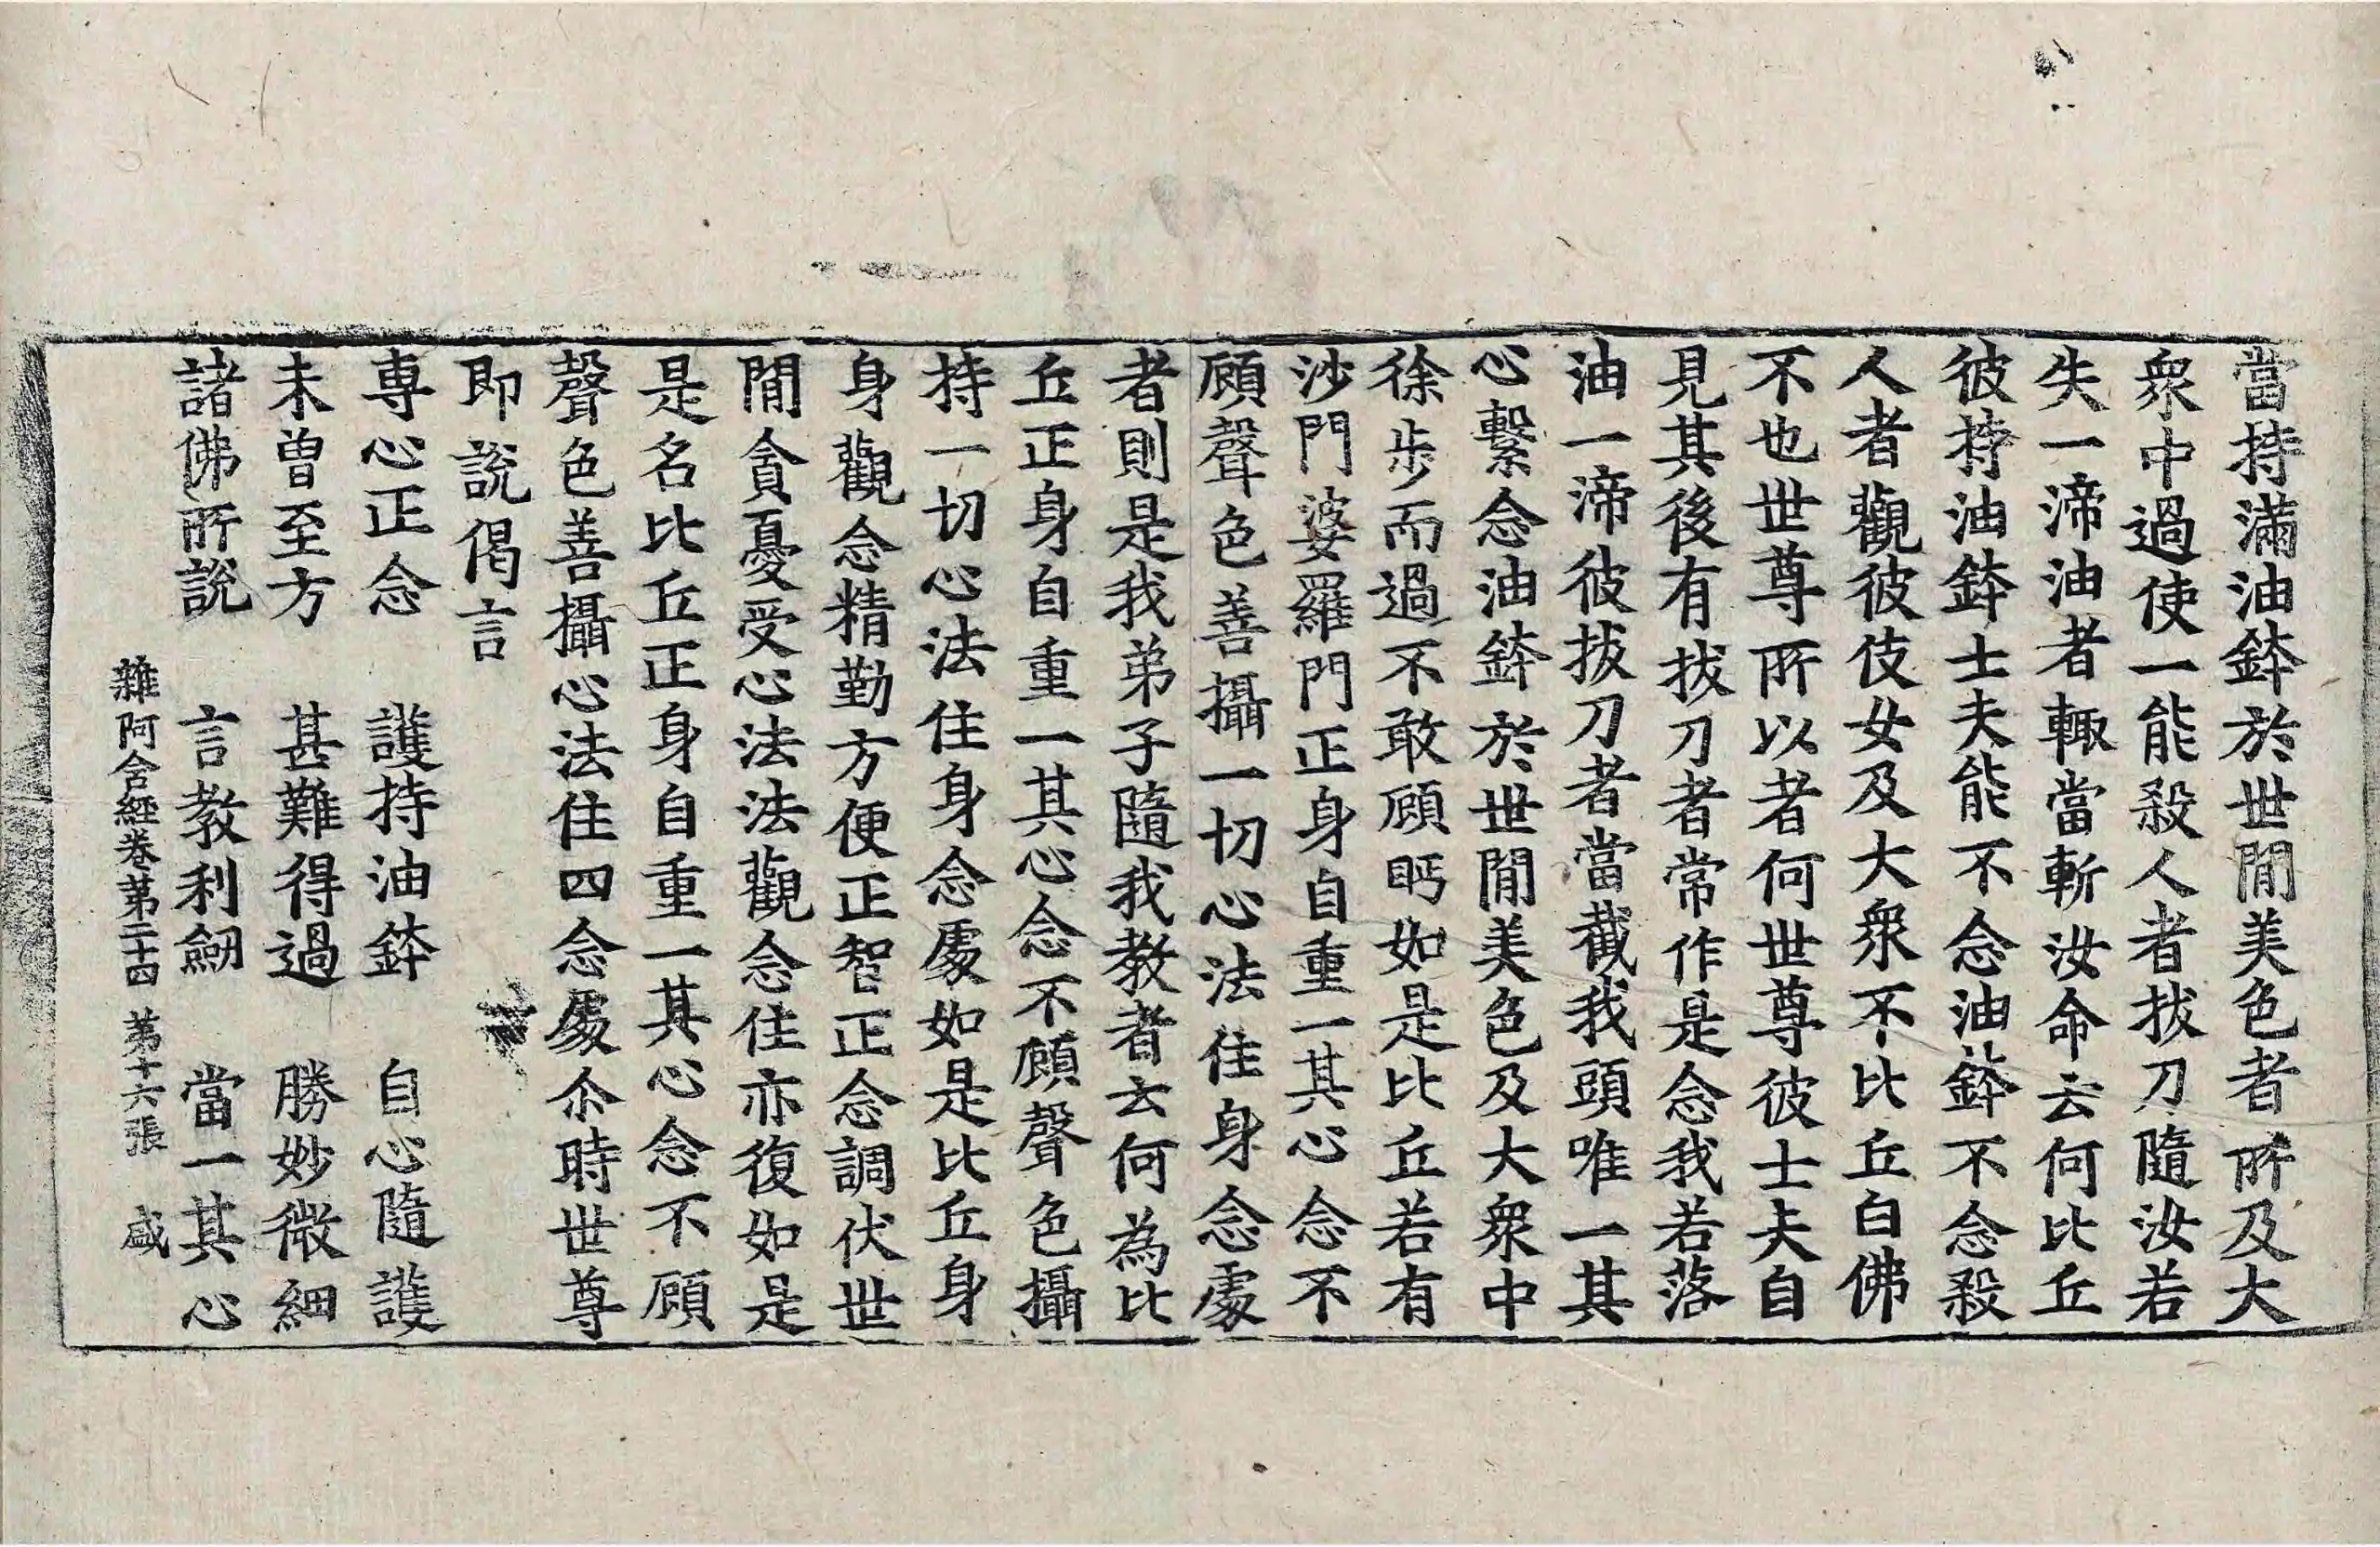 當持滿油鉢於世閒美色者所及大
衆中過使一能殺人者拔刀隨汝若
失一渧油者輙當斬汝命云何比丘
彼持油鉢士夫能不念油鉢不念殺
人者觀彼伎女及大衆不比丘白佛
不也世尊所以者何世尊彼士夫自
見其後有拔刀者常作是念我若落
油一渧彼拔刀者當截我頭唯一其
心繫念油鉢於世閒美色及大衆中
徐步而過不敢顧眄如是比丘若有
沙門婆羅門正身自重一其心念不
顧聲色善攝一切心法住身念處
者則是我弟子隨我教者云何為比
丘正身自重一其心念不顧聲色攝
持一切心法住身念處如是比丘身
身觀念精勤方便正智正念調伏世
閒貪憂受心法法觀念住亦復如是
是名比丘正身自重一其心念不顧
聲色善攝心法住四念處尒時世尊
即說偈言
専心正念　護持油鉢　自心隨護
未曾至方　甚難得過　勝妙微細
諸佛所說　言教利劒　當一其心
雜阿含經卷第二十四　第十六張　盛